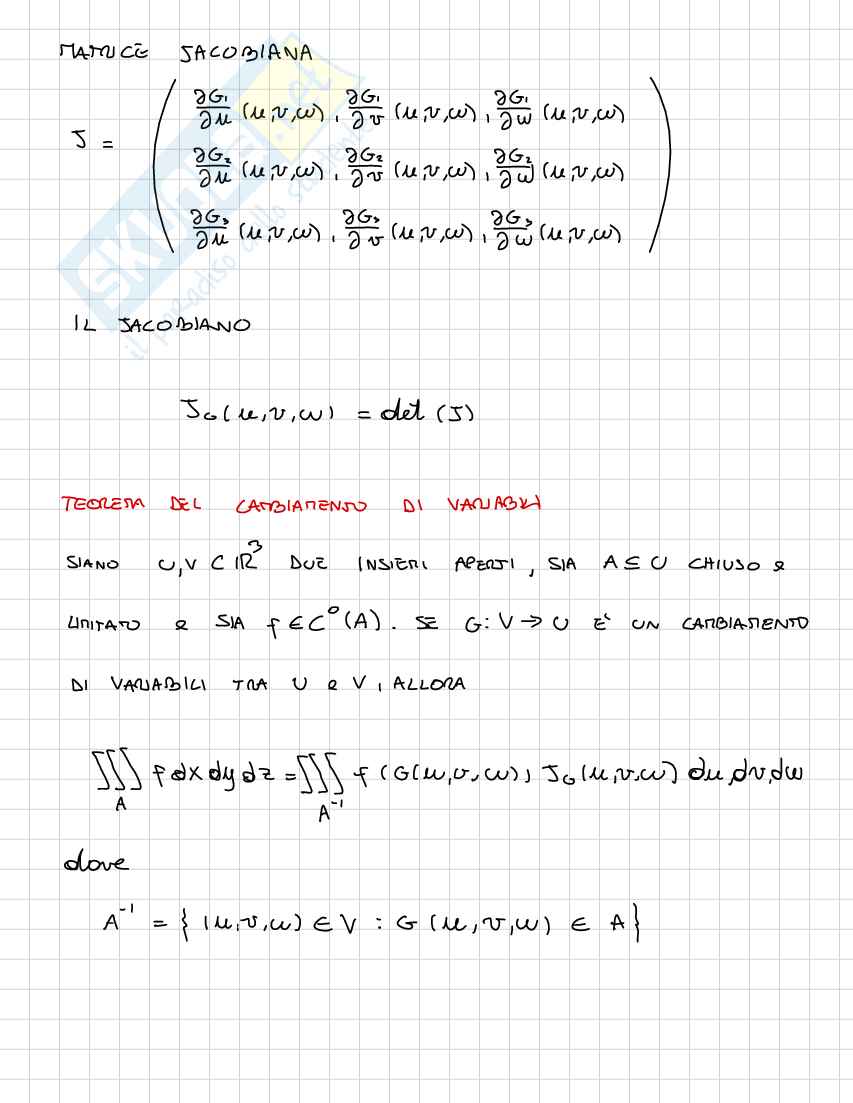 MATRICE JACOBIANA
J = ( ∂G₁/∂u (u,v,w), ∂G₁/∂v (u,v,w), ∂G₁/∂w (u,v,w)
∂G₂/∂u (u,v,w), ∂G₂/∂v (u,v,w), ∂G₂/∂w (u,v,w)
∂G₃/∂u (u,v,w), ∂G₃/∂v (u,v,w), ∂G₃/∂w (u,v,w) )
IL JACOBIANO
J_G(u,v,w) = det (J)
TEOREMA DEL CAMBIAMENTO DI VARIABILI
SIANO U,V ⊂ ℝ³ DUE INSIEMI APERTI, SIA A ⊆ U CHIUSO e
LIMITATO e SIA f ∈ C⁰(A). SE G: V → U E' UN CAMBIAMENTO
DI VARIABILI TRA U e V, ALLORA
∭_A f dx dy dz = ∭_A⁻¹ f (G(u,v,w), J_G(u,v,w) du,dv,dw
dove
A⁻¹ = { (u,v,w) ∈ V : G (u,v,w) ∈ A}
SKUOLA.net
il paradiso dello studente